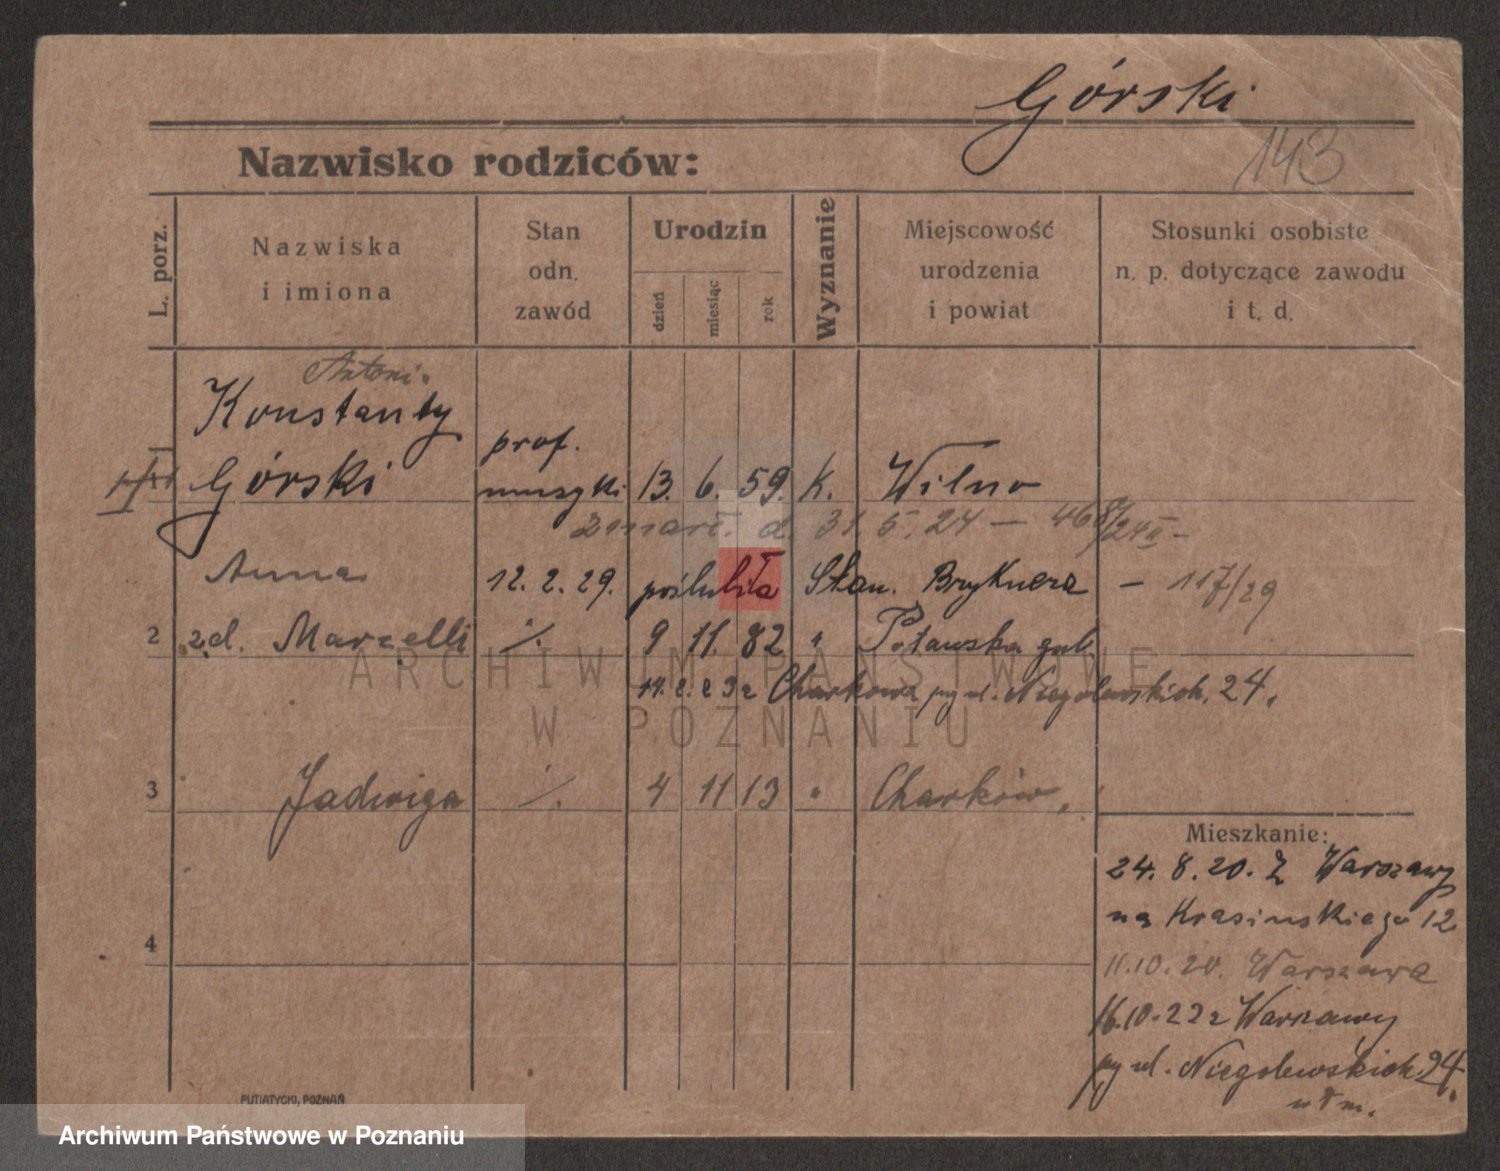 Górski
143
Nazwisko rodziców:
L. porz.
Nazwiska
i imiona
Stan
odn.
zawód
Urodzin
dzień
miesiąc
rok
Wyznanie
Miejscowość
urodzenia
i powiat
Stosunki osobiste
n. p. dotyczące zawodu
i t. d.
Antoni.
Konstanty
Górski
prof.
muzyki
13. 6. 59. K. Wilno
zmarł. d. 31 5. 24 — 468/24
Anna 12. 2. 29. poślubiła Stan. Brzyknera — 117/29
2 zd. Marzelli ./. 9 11. 82 " Połtawska gub.
ARCHIWUM PAŃSTWOWE
Charkowa ul. Niegolewskich. 24.
W POZNANIU
3 Jadwiga ./. 4 11 13 " Charków.
Mieszkanie:
24. 8. 20. Z Warszawy
na Krasińskiego 12
4
11.10.20. Warszawa
16.10.22 z Warszawy
ul. Niegolewskich 24.
PUTIATYCKI, POZNAŃ
Archiwum Państwowe w Poznaniu